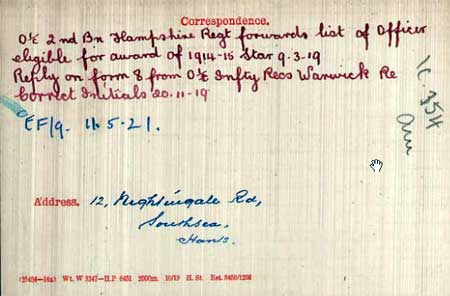 Correspondence.
O i/c 2nd Bn Hampshire Regt forwards list of Officer
eligible for award of 1914-15 Star 9-3-19
Reply on form 8 from O i/c Infty Recs Warwick Re
Correct Initials 20-11-19
EF/9. 11.5.21.
Address. 12, Nightingale Rd,
Southsea,
Hants.
(25454-14a) Wt. W 3347-H.P 6451 2000m. 10/19 H. St. Est. 8450/1250